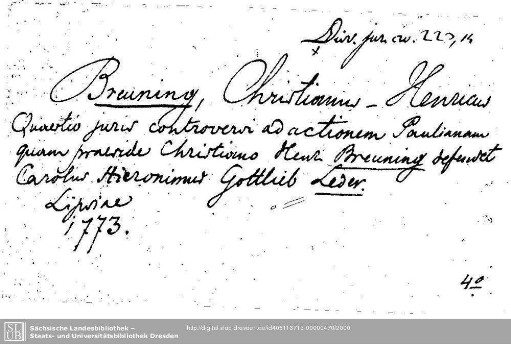 Diss. jur. civ. 223,14
Breuning, Christianus Henricus
Quaestio juris controversi ad actionem Paulianam
quam praeside Christiano Henr. Breuning defendet
Carolus Hieronimus Gottlieb Leder.
Lipsiae
1773.
4º
SLUB
Sächsische Landesbibliothek –
Staats- und Universitätsbibliothek Dresden